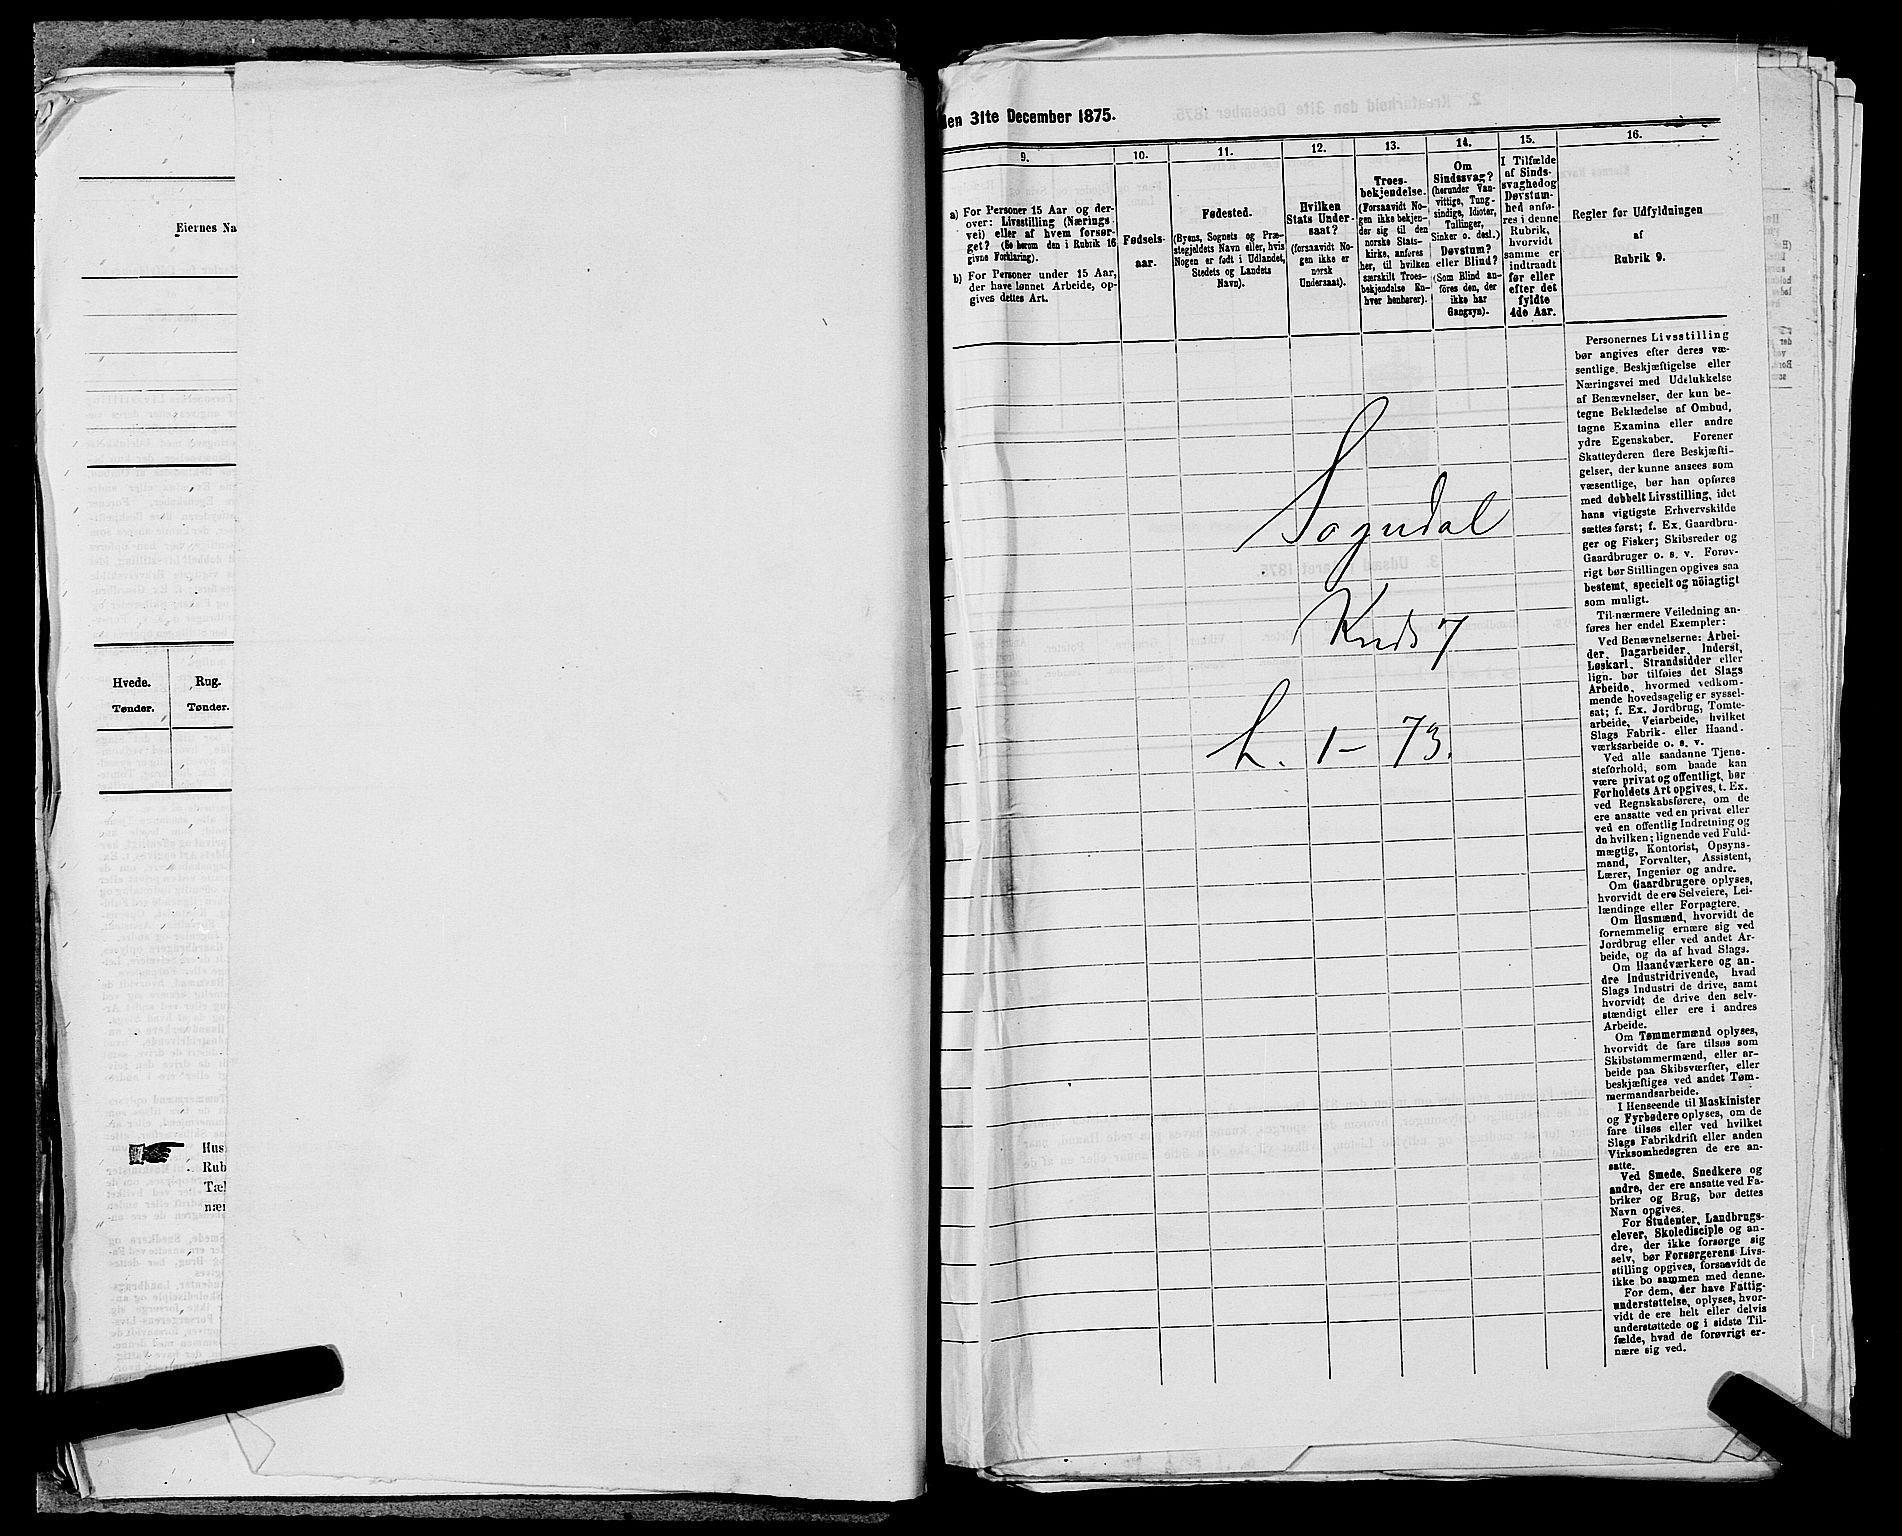 Eiernes Na
Hvede.
Tønder.
Rug.
Tønder.
Hus
Rub
Tæl
nær
den 31te December 1875.
9.
a) For Personer 15 Aar og der-
over: Livsstilling (Nærings-
vei) eller af hvem forsør-
get? (Se herom den i Rubrik 16
givne Forklaring).
b) For Personer under 15 Aar,
der have lønnet Arbeide, op-
gives dettes Art.
10.
Fødsels-
aar.
11.
Fødested.
(Byens, Sognets og Præ-
stegjeldets Navn eller, hvis
Nogen er født i Udlandet,
Stedets og Landets
Navn).
12.
Hvilken
Stats Under-
saat?
(forsaavidt No-
gen ikke er
norsk
Undersaat).
13.
Troes-
bekjendelse.
(Forsaavidt No-
gen ikke bekjen-
der sig til den
norske Stats-
kirke, anføres
her, til hvilken
særskilt Troes-
bekjendelse En-
hver henhører).
14.
Om
Sindssvag?
(herunder Van-
vittige, Tung-
sindige, Idioter,
Tullinger,
Sinker o. desl.)
Døvstum?
eller Blind?
(Som Blind an-
føres den, der
ikke har
Gangsyn).
15.
I Tilfælde
af Sinds-
svaghed og
Døvstum-
hed anfø-
res i denne
Rubrik,
hvorvidt
samme er
indtraadt
før eller
efter det
fyldte
4de Aar.
16.
Regler for Udfyldningen
af
Rubrik 9.
Personernes Livsstilling
bør angives efter deres væ-
sentlige Beskjæftigelse eller
Næringsvei med Udelukkelse
af Benævnelser, der kun be-
tegne Beklædelse af Ombud,
tagne Examina eller andre
ydre Egenskaber. Forener
Skatteyderen flere Beskjæfti-
gelser, der kunne ansees som
væsentlige, bør han opføres
med dobbelt Livsstilling, idet
hans vigtigste Erhvervskilde
sættes først; f. Ex. Gaardbru-
ger og Fisker; Skibsreder og
Gaardbruger o. s. v. Forøv-
rigt bør Stillingen opgives saa
bestemt, specielt og nöiagtigt
som muligt.
Til nærmere Veiledning an-
føres her endel Exempler:
Ved Benævnelserne: Arbei-
der, Dagarbeider, Inderst,
Løskarl, Strandsidder eller
lign. bør tilføies det Slags
Arbeide, hvormed vedkom-
mende hovedsagelig er syssel-
sat; f. Ex. Jordbrug, Tomte-
arbeide, Veiarbeide, hvilket
Slags Fabrik- eller Haand-
værksarbeide o. s. v.
Ved alle saadanne Tjene-
steforhold, som baade kan
være privat og offentligt, bør
Forholdets Art opgives, t. Ex.
ved Regnskabsførere, om de
ere ansatte ved en privat eller
ved en offentlig Indretning og
da hvilken; lignende ved Fuld-
mægtig, Kontorist, Opsyns-
mand, Forvalter, Assistent,
Lærer, Ingeniør og andre.
Om Gaardbrugere oplyses,
hvorvidt de ere Selveiere, Lei-
lændinge eller Forpagtere.
Om Husmænd, hvorvidt de
fornemmelig ernære sig ved
Jordbrug eller ved andet Ar-
beide, og da af hvad Slags.
Om Haandværkere og an-
dre Industridrivende, hvad
Slags Industri de drive, samt
hvorvidt de drive den selv-
stændigt eller ere i andres
Arbeide.
Om Tømmermænd oplyses,
hvorvidt de fare tilsøs som
Skibstømmermænd, eller ar-
beide paa Skibsværfter, eller
beskjæftiges ved andet Tøm-
mermandsarbeide.
I Henseende til Maskinister
og Fyrbødere oplyses, om de
fare tilsøs eller ved hvilket
Slags Fabrikdrift eller anden
Virksomhedsgren de ere an-
satte.
Ved Smede, Snedkere og
andre, der ere ansatte ved Fa-
briker og Brug, bør dettes
Navn opgives.
For Studenter, Landbrugs-
elever, Skoledisciple og an-
dre, der ikke forsørge sig
selv, bør Forsørgerens Livs-
stilling opgives, forsaavidt de
ikke bo sammen med denne.
For dem, der have Fattig-
understøttelse, oplyses, hvor-
vidt de ere helt eller delvis
understøttede og i sidste Til-
fælde, hvad de forøvrigt er-
nære sig ved.
Sogndal
Kreds 7
L. 1 - 73.